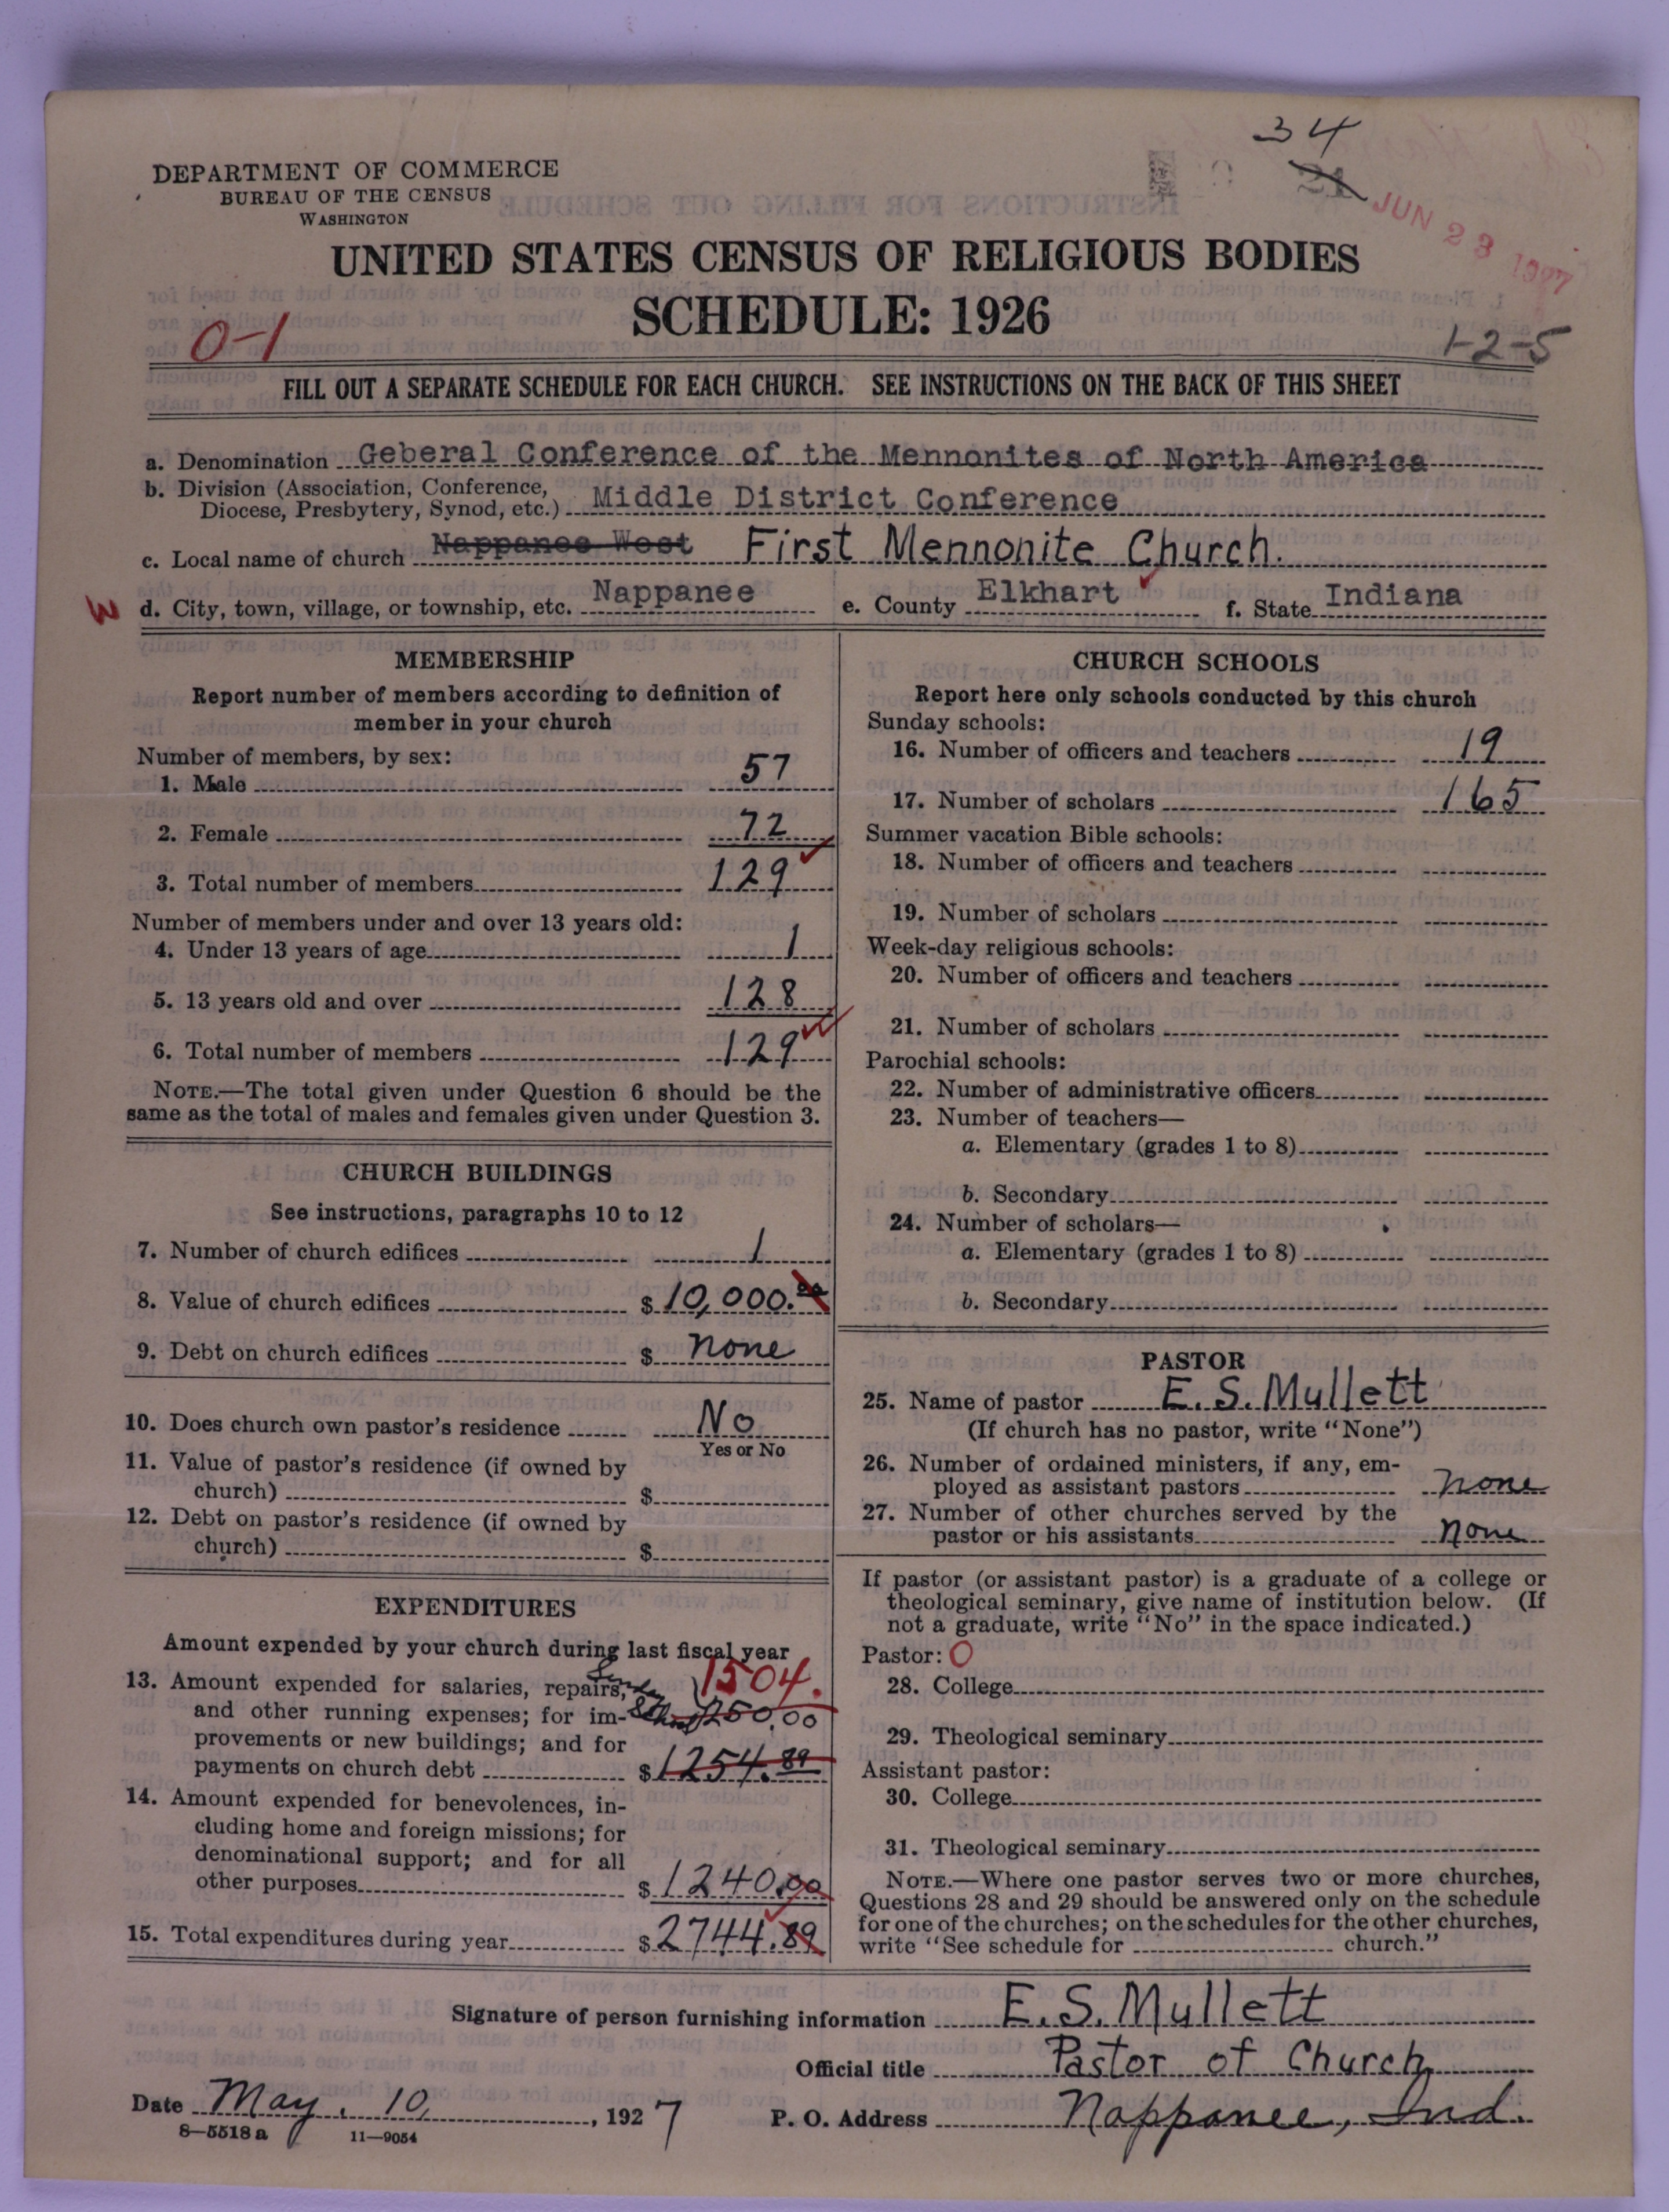 34
21
JUN 23 1927
DEPARTMENT OF COMMERCE
BUREAU OF THE CENSUS
WASHINGTON
UNITED STATES CENSUS OF RELIGIOUS BODIES
SCHEDULE: 1926
0-1
1-2-5
FILL OUT A SEPARATE SCHEDULE FOR EACH CHURCH. SEE INSTRUCTIONS ON THE BACK OF THIS SHEET
a. Denomination Geberal Conference of the Mennonites of North America
b. Division (Association, Conference, Diocese, Presbytery, Synod, etc.) Middle District Conference
c. Local name of church Nappanee West First Mennonite Church.
W d. City, town, village, or township, etc. Nappanee e. County Elkhart f. State Indiana
MEMBERSHIP
Report number of members according to definition of
member in your church
Number of members, by sex:
1. Male 57
2. Female 72
3. Total number of members 129
Number of members under and over 13 years old:
4. Under 13 years of age 1
5. 13 years old and over 128
6. Total number of members 129
NOTE.—The total given under Question 6 should be the
same as the total of males and females given under Question 3.
CHURCH BUILDINGS
See instructions, paragraphs 10 to 12
7. Number of church edifices 1
8. Value of church edifices $ 10,000.00
9. Debt on church edifices $ none
10. Does church own pastor's residence No
Yes or No
11. Value of pastor's residence (if owned by
church) $
12. Debt on pastor's residence (if owned by
church) $
EXPENDITURES
Amount expended by your church during last fiscal year
13. Amount expended for salaries, repairs, Sunday 1504.
and other running expenses; for im- School 250.00
provements or new buildings; and for
payments on church debt $ 1254.89
14. Amount expended for benevolences, in-
cluding home and foreign missions; for
denominational support; and for all
other purposes $ 1240.00
15. Total expenditures during year $ 2744.89
CHURCH SCHOOLS
Report here only schools conducted by this church
Sunday schools:
16. Number of officers and teachers 19
17. Number of scholars 165
Summer vacation Bible schools:
18. Number of officers and teachers
19. Number of scholars
Week-day religious schools:
20. Number of officers and teachers
21. Number of scholars
Parochial schools:
22. Number of administrative officers
23. Number of teachers—
a. Elementary (grades 1 to 8)
b. Secondary
24. Number of scholars—
a. Elementary (grades 1 to 8)
b. Secondary
PASTOR
25. Name of pastor E. S. Mullett
(If church has no pastor, write "None")
26. Number of ordained ministers, if any, em-
ployed as assistant pastors none
27. Number of other churches served by the
pastor or his assistants none
If pastor (or assistant pastor) is a graduate of a college or
theological seminary, give name of institution below. (If
not a graduate, write "No" in the space indicated.)
Pastor: O
28. College
29. Theological seminary
Assistant pastor:
30. College
31. Theological seminary
NOTE.—Where one pastor serves two or more churches,
Questions 28 and 29 should be answered only on the schedule
for one of the churches; on the schedules for the other churches,
write "See schedule for church."
Signature of person furnishing information E. S. Mullett
Official title Pastor of Church
Date May. 10, 1927 P. O. Address Nappanee, Ind.
8—5518a 11—9054